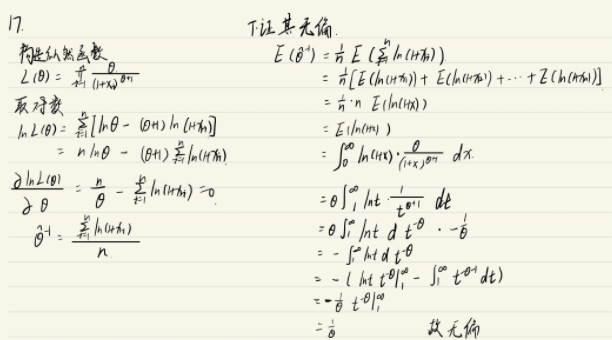 17.
构造似然函数
L(θ) = ∏_{i=1}^{n} θ/(1+x_i)^{θ+1}
取对数
ln L(θ) = ∑_{i=1}^{n} [lnθ - (θ+1) ln(1+x_i)]
= n lnθ - (θ+1) ∑_{i=1}^{n} ln(1+x_i)
∂ ln L(θ)/∂θ = n/θ - ∑_{i=1}^{n} ln(1+x_i) = 0
θ̂^{-1} = ∑_{i=1}^{n} ln(1+x_i) / n
下证其无偏.
E(θ̂^{-1}) = 1/n E(∑_{i=1}^{n} ln(1+x_i))
= 1/n [E(ln(1+x_1)) + E(ln(1+x_2)) + ⋯ + E(ln(1+x_n))]
= 1/n · n E(ln(1+x))
= E(ln(1+x))
= ∫_0^∞ ln(1+x) · θ/(1+x)^{θ+1} dx.
= θ∫_1^∞ ln t · 1/t^{θ+1} dt
= θ∫_1^∞ ln t d t^{-θ} · -1/θ
= - ∫_1^∞ ln t d t^{-θ}
= - ( ln t t^{-θ}|_1^∞ - ∫_1^∞ t^{-θ-1} dt)
= -1/θ t^{-θ}|_1^∞
= 1/θ 故无偏